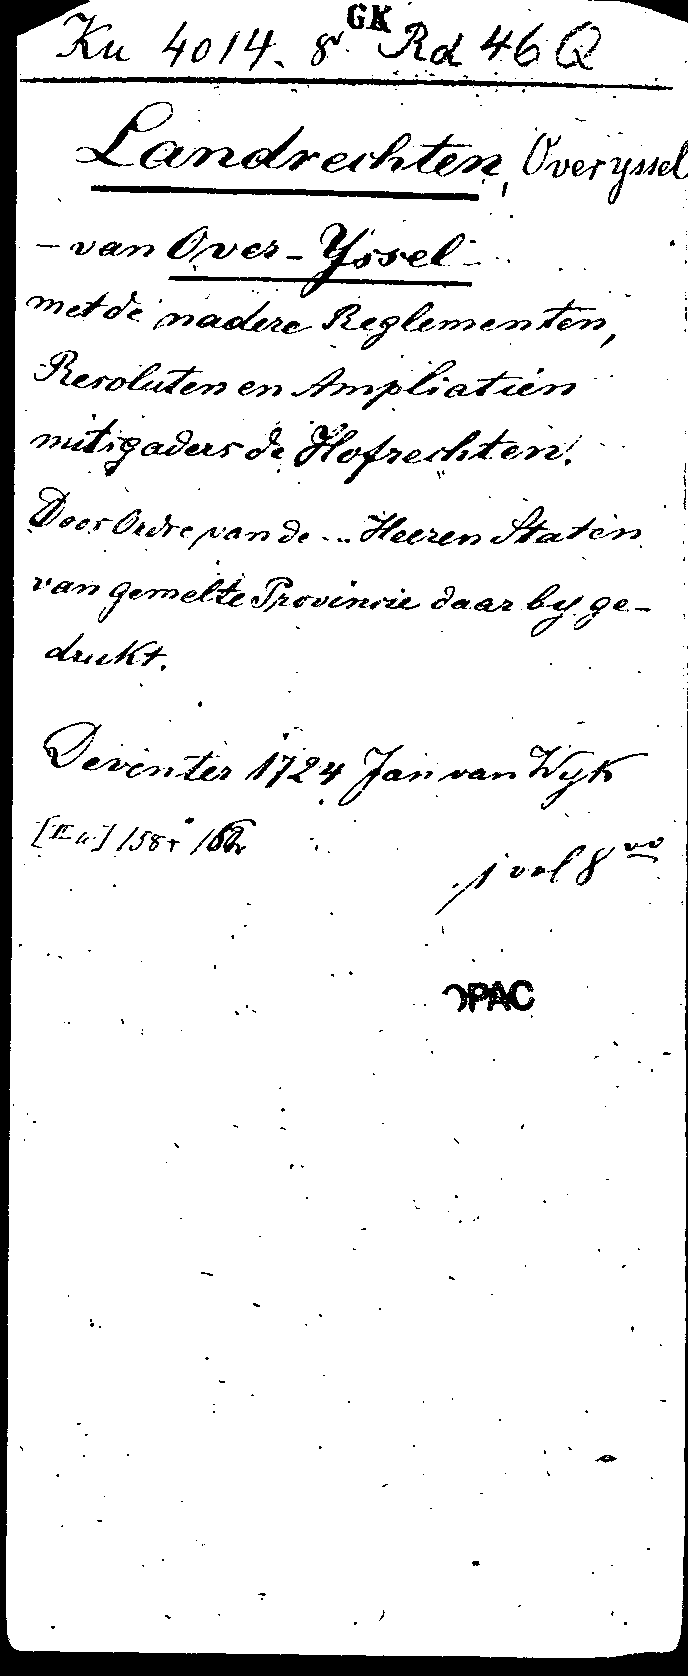 GK
Ku 4014. 8° Rd 46 Q
Landrechten, Overyssel
- van Over-Yssel -
met de nadere Reglementen,
Resoluten en Ampliatien
mitsgaders de Hofrechten.
Door Ordre van de ... Heeren Staten
van gemelte Provincie daar by ge-
drukt.
Deventer 1724 Jan van Wyk
158
1 vol 8vo
OPAC